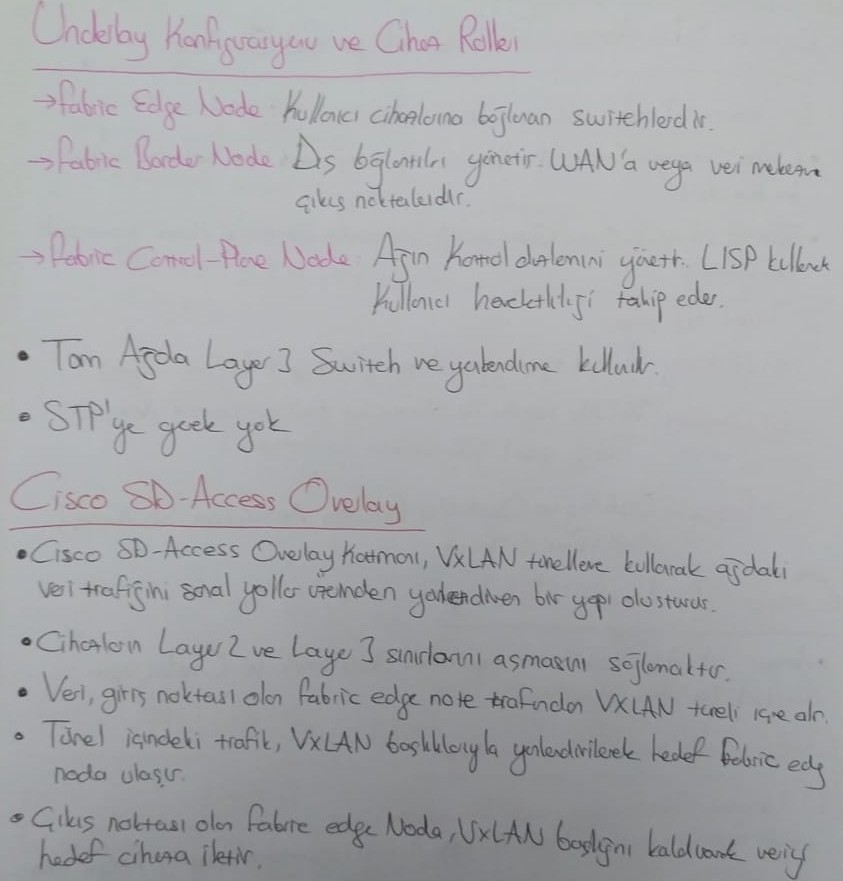 Underlay Konfigurasyonu ve Cihaz Rolleri
→ Fabric Edge Node Kullanıcı cihazlarına bağlanan switchlerdir.
→ Fabric Border Node Dış bağlantıları yönetir. WAN'a veya veri merkezine
çıkış noktalarıdır.
→ Fabric Control-Plane Node Ağın Kontrol düzlemini yönetir. LISP kullanarak
Kullanıcı hareketliliği takip eder.
• Tüm Ağda Layer 3 Switch ve yönlendirme kullanılır.
• STP'ye gerek yok
Cisco SD-Access Overlay
• Cisco SD-Access Overlay Katmanı, VXLAN tünelleme kullanarak ağdaki
veri trafiğini sanal yollar üzerinden yönlendiren bir yapı oluşturur.
• Cihazların Layer 2 ve Layer 3 sınırlarını aşmasını sağlamaktır.
• Veri, giriş noktası olan fabric edge note tarafından VXLAN tüneli içine alır.
• Tünel içindeki trafik, VXLAN başlıklarıyla yönlendirilerek hedef fabric edg
noda ulaşır.
• Çıkış noktası olan Fabric edge Noda, VXLAN başlığını kaldırarak veriyi
hedef cihaza iletir.